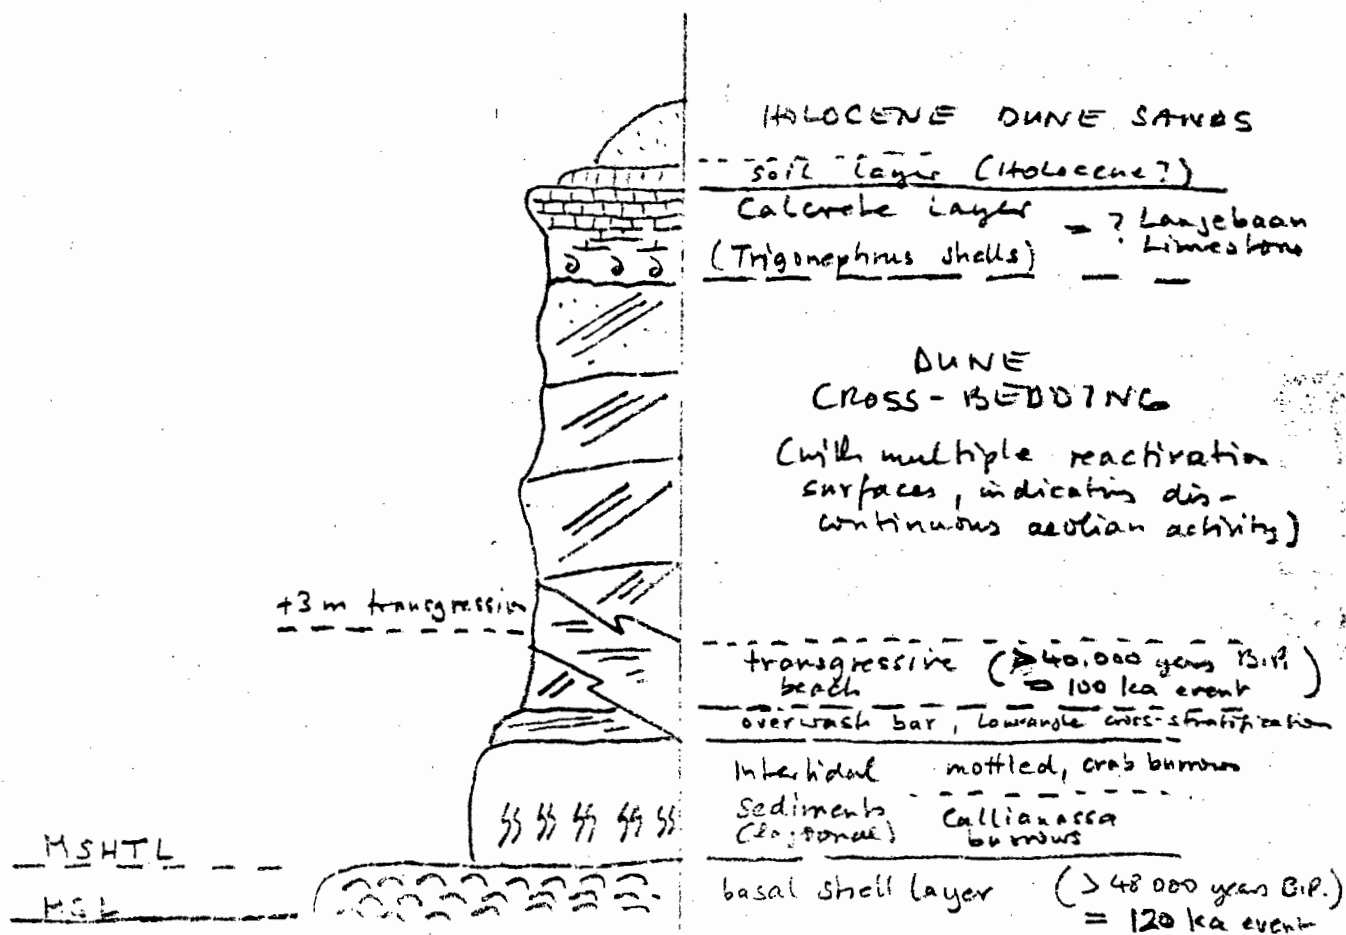 HOLOCENE DUNE SANDS
soil layer (Holocene?)
Calcrete Layer
(Trigonephrus shells)
= ? Langebaan
Limestone
DUNE
CROSS-BEDDING
(with multiple reactivation
surfaces, indicating dis-
continuous aeolian activity)
+3 m transgression
transgressive
beach
(>40.000 years B.P.
= 100 ka event)
overwash bar, Lowangle cross-stratification
Intertidal
Sediments
(Lagoonal)
mottled, crab burrows
Callianassa
burrows
MSHTL
basal shell layer
(>48 000 years B.P.)
= 120 ka event
MSL